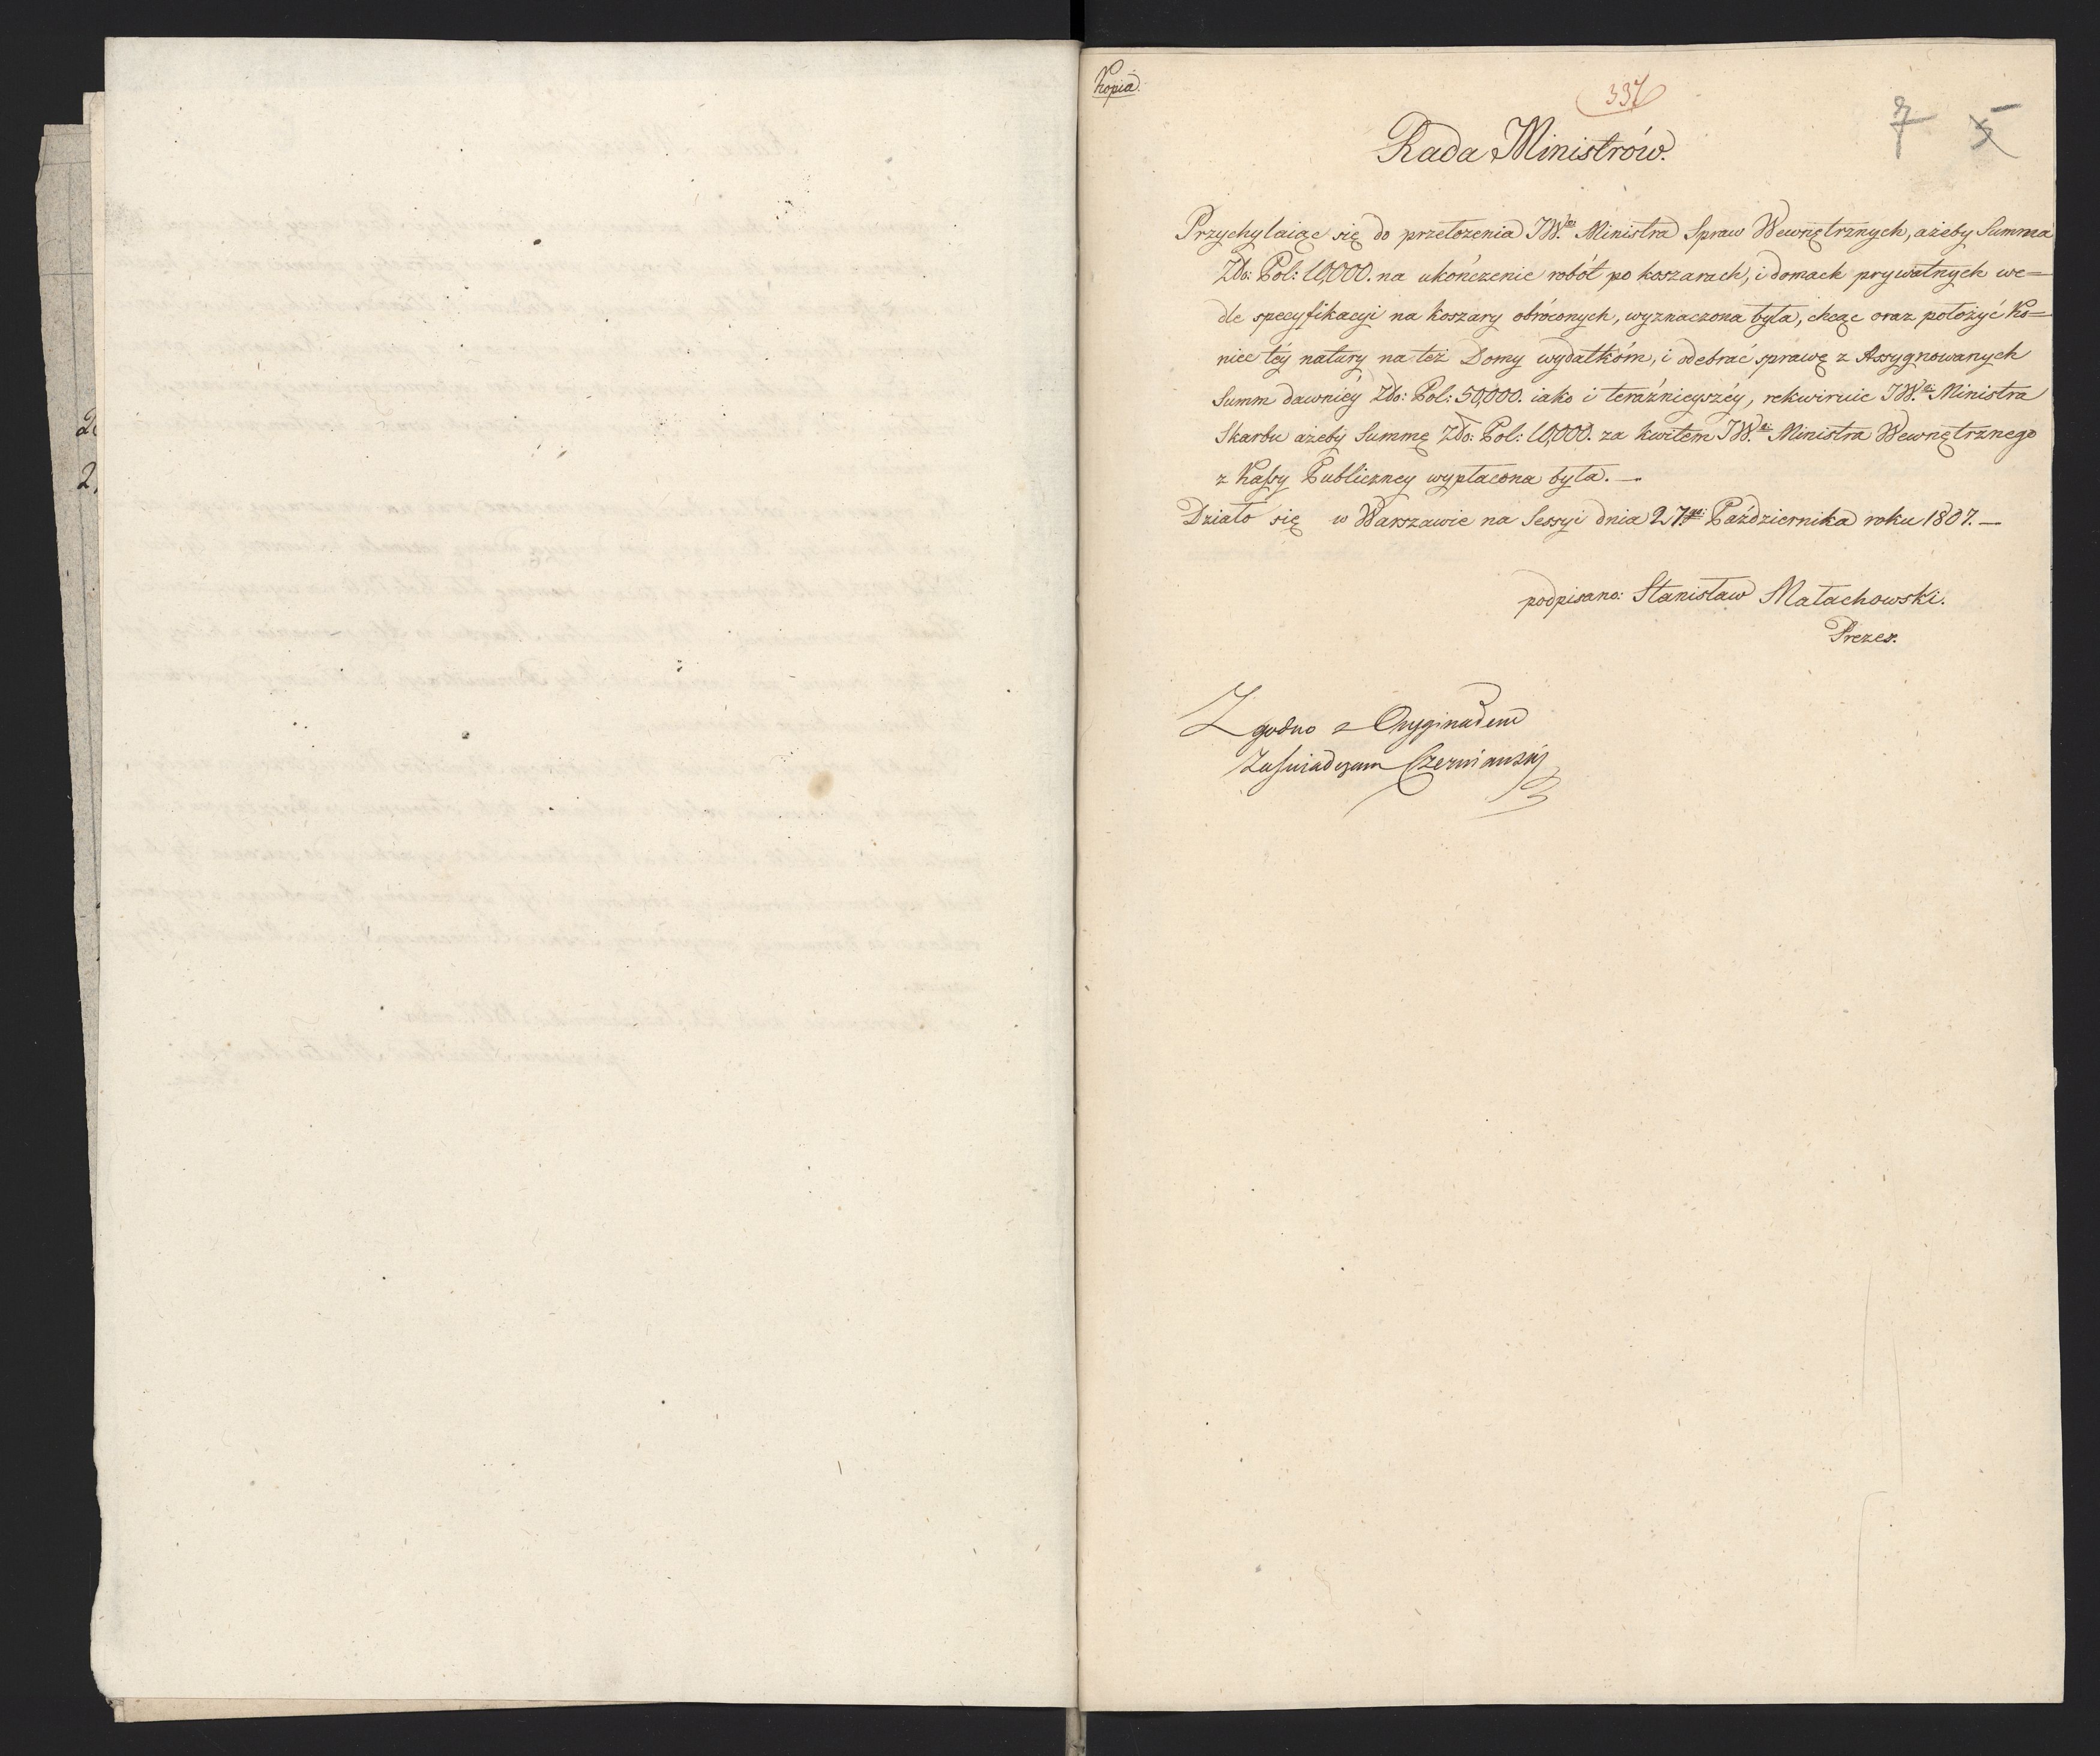 Kopia.
337
7 5
Rada Ministrów.
Przychylaiąc się do przełożenia JW.go Ministra Spraw Wewnętrznych, ażeby Summa
Zło: Pol: 10,000. na ukończenie robót po koszarach, i domach prywatnych we=
dle specyfikacyi na koszary obróconych, wyznaczona była, chcąc oraz położyć ko=
niec téy natury na też Domy wydatkóm, i odebrać sprawę z Assygnowanych
Summ dawniéy Zło: Pol: 50,000. iako i teraźnieyszéy, rekwiruie JW.go Ministra
Skarbu ażeby Summę Zło: Pol: 10,000. za kwitem JW.go Ministra Wewnętrznego
z Kassy Publiczney wypłacona była. —
Działo się w Warszawie na Sessyi dnia 27go Października roku 1807. —
podpisano: Stanisław Małachowski.
Prezes.
Zgodno z Oryginałem
Zaświadczam